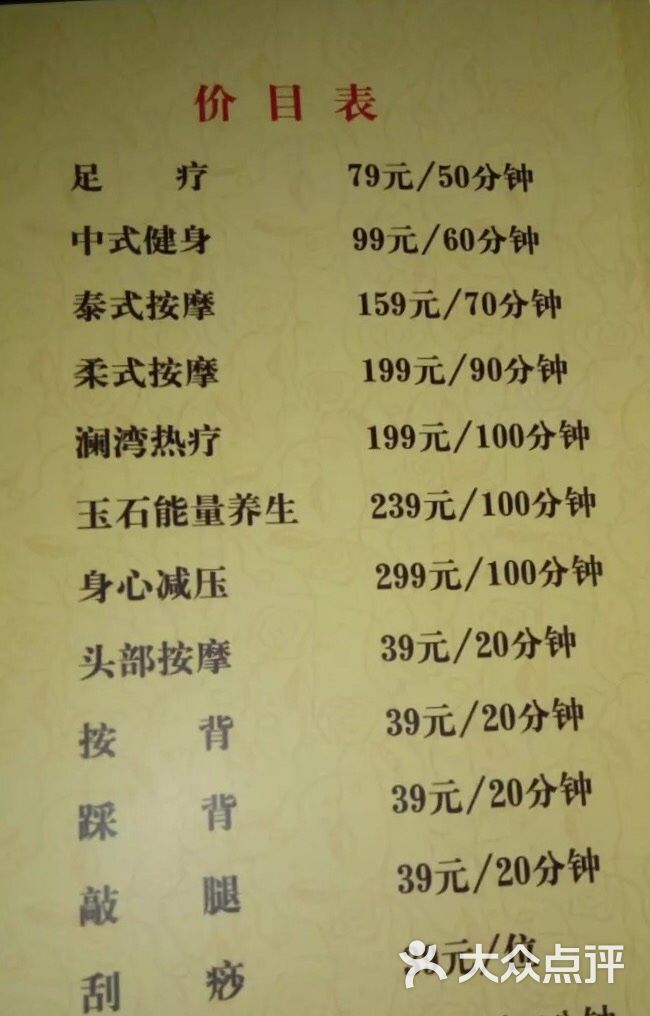 价目表
足 疗 79元/50分钟
中式健身 99元/60分钟
泰式按摩 159元/70分钟
柔式按摩 199元/90分钟
澜湾热疗 199元/100分钟
玉石能量养生 239元/100分钟
身心减压 299元/100分钟
头部按摩 39元/20分钟
按 背 39元/20分钟
踩 背 39元/20分钟
敲 腿 39元/20分钟
刮 痧 元/位
大众点评